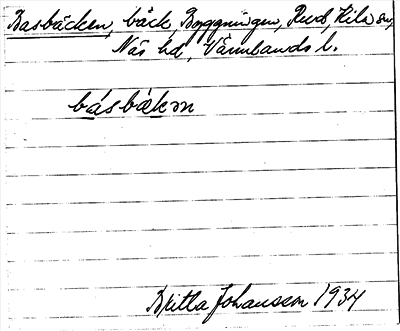 Basbäcken, bäck, Byggningen, Rud, Kila sn,
Näs hd, Värmlands l.
båsbäkən
Britta Johansson 1934